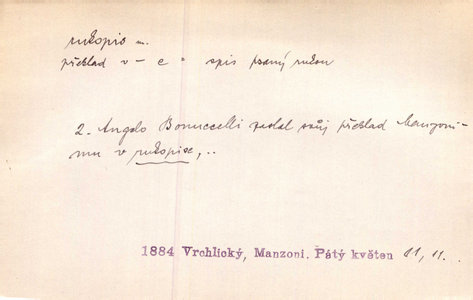 rukopis m.
překlad v – e = spis psaný rukou
2. Angelo Bonuccelli zaslal svůj překlad Manzoni-
mu v rukopise, ..
1884 Vrchlický, Manzoni. Pátý květen 11, 11.